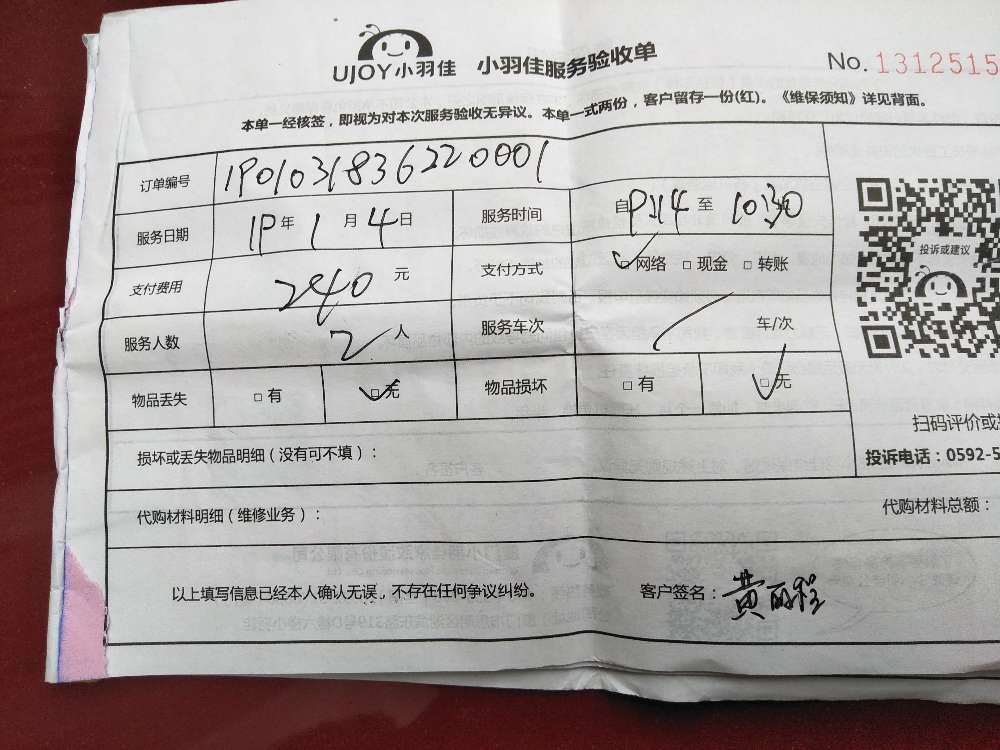 UJOY小羽佳 小羽佳服务验收单
No. 1312515
本单一经核签，即视为对本次服务验收无异议。本单一式两份，客户留存一份(红)。《维保须知》详见背面。
订单编号 1901031836220001
服务日期 19年1月4日 服务时间 自9:14至10:30
支付费用 240元 支付方式 ☑网络 □现金 □转账
服务人数 2人 服务车次 / 车/次
物品丢失 □有 ☑无 物品损坏 □有 ☑无
投诉或建议
扫码评价或
损坏或丢失物品明细（没有可不填）：
投诉电话：0592-5
代购材料明细（维修业务）：
代购材料总额：
以上填写信息已经本人确认无误，不存在任何争议纠纷。 客户签名：黄丽程